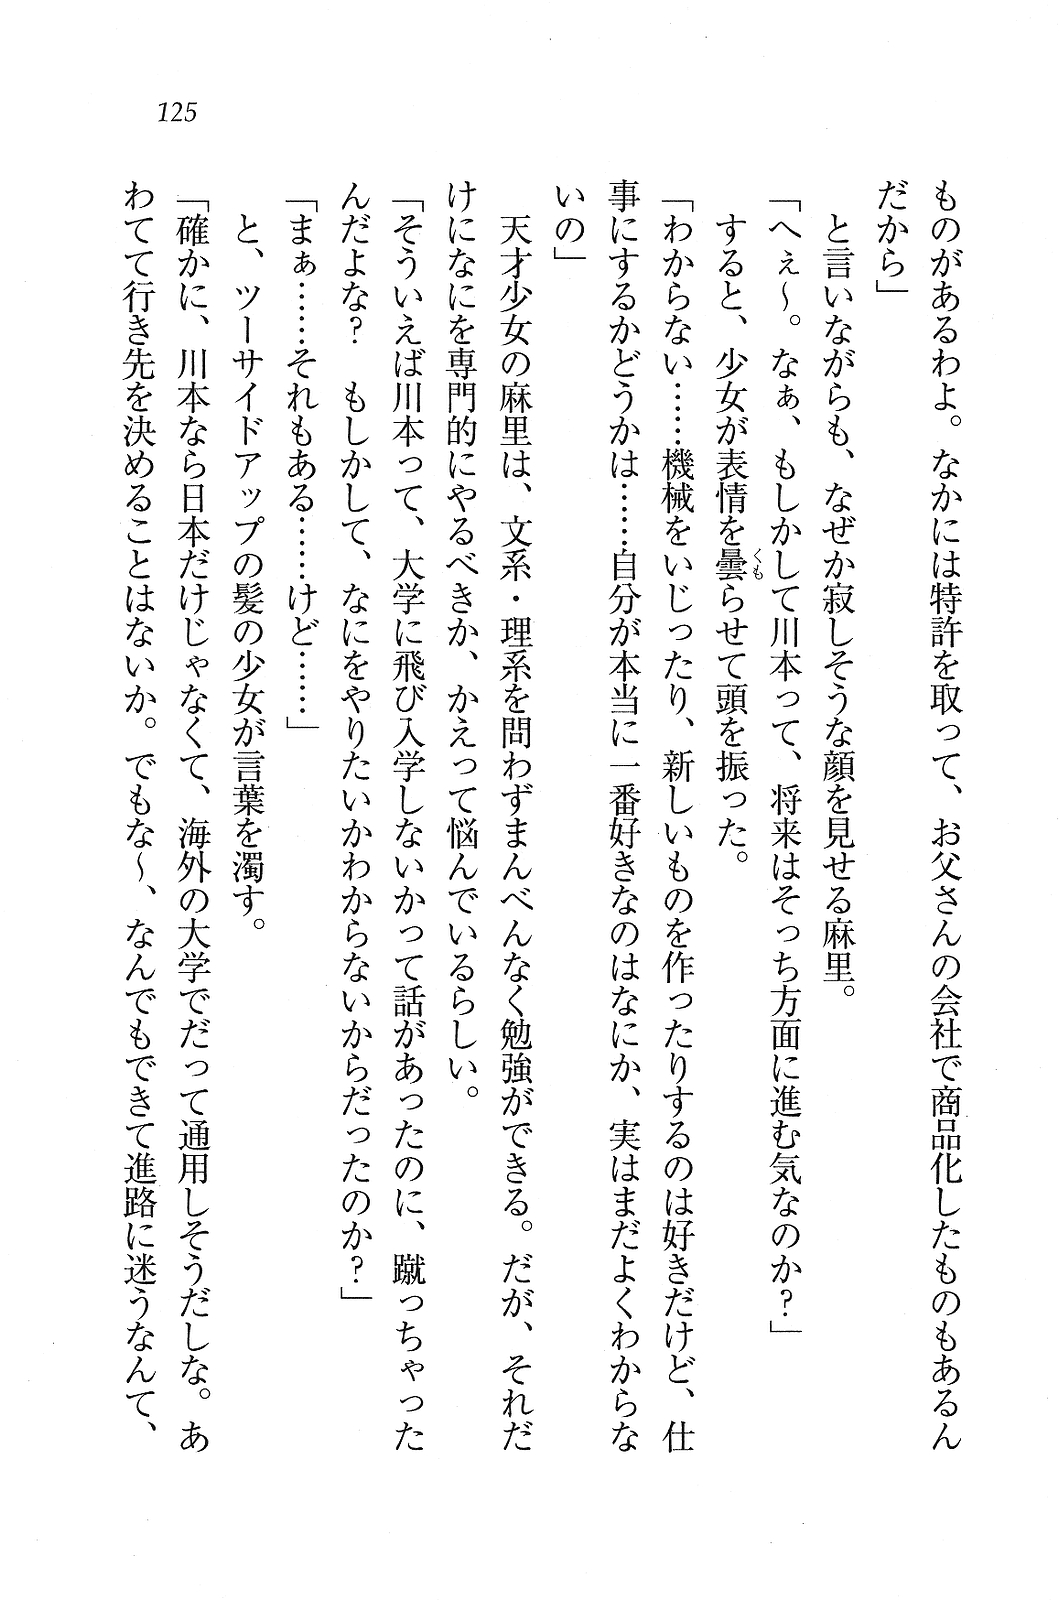 125
ものがあるわよ。なかには特許を取って、お父さんの会社で商品化したものもあるん
だから」
　と言いながらも、なぜか寂しそうな顔を見せる麻里。
「へぇ～。なぁ、もしかして川本って、将来はそっち方面に進む気なのか？」
　すると、少女が表情を曇らせて頭を振った。
くも
「わからない……機械をいじったり、新しいものを作ったりするのは好きだけど、仕
事にするかどうかは……自分が本当に一番好きなのはなにか、実はまだよくわからな
いの」
　天才少女の麻里は、文系・理系を問わずまんべんなく勉強ができる。だが、それだ
けになにを専門的にやるべきか、かえって悩んでいるらしい。
「そういえば川本って、大学に飛び入学しないかって話があったのに、蹴っちゃった
んだよな？　もしかして、なにをやりたいかわからないからだったのか？」
「まぁ……それもある……けど……」
　と、ツーサイドアップの髪の少女が言葉を濁す。
「確かに、川本なら日本だけじゃなくて、海外の大学でだって通用しそうだしな。あ
わてて行き先を決めることはないか。でもな～、なんでもできて進路に迷うなんて、